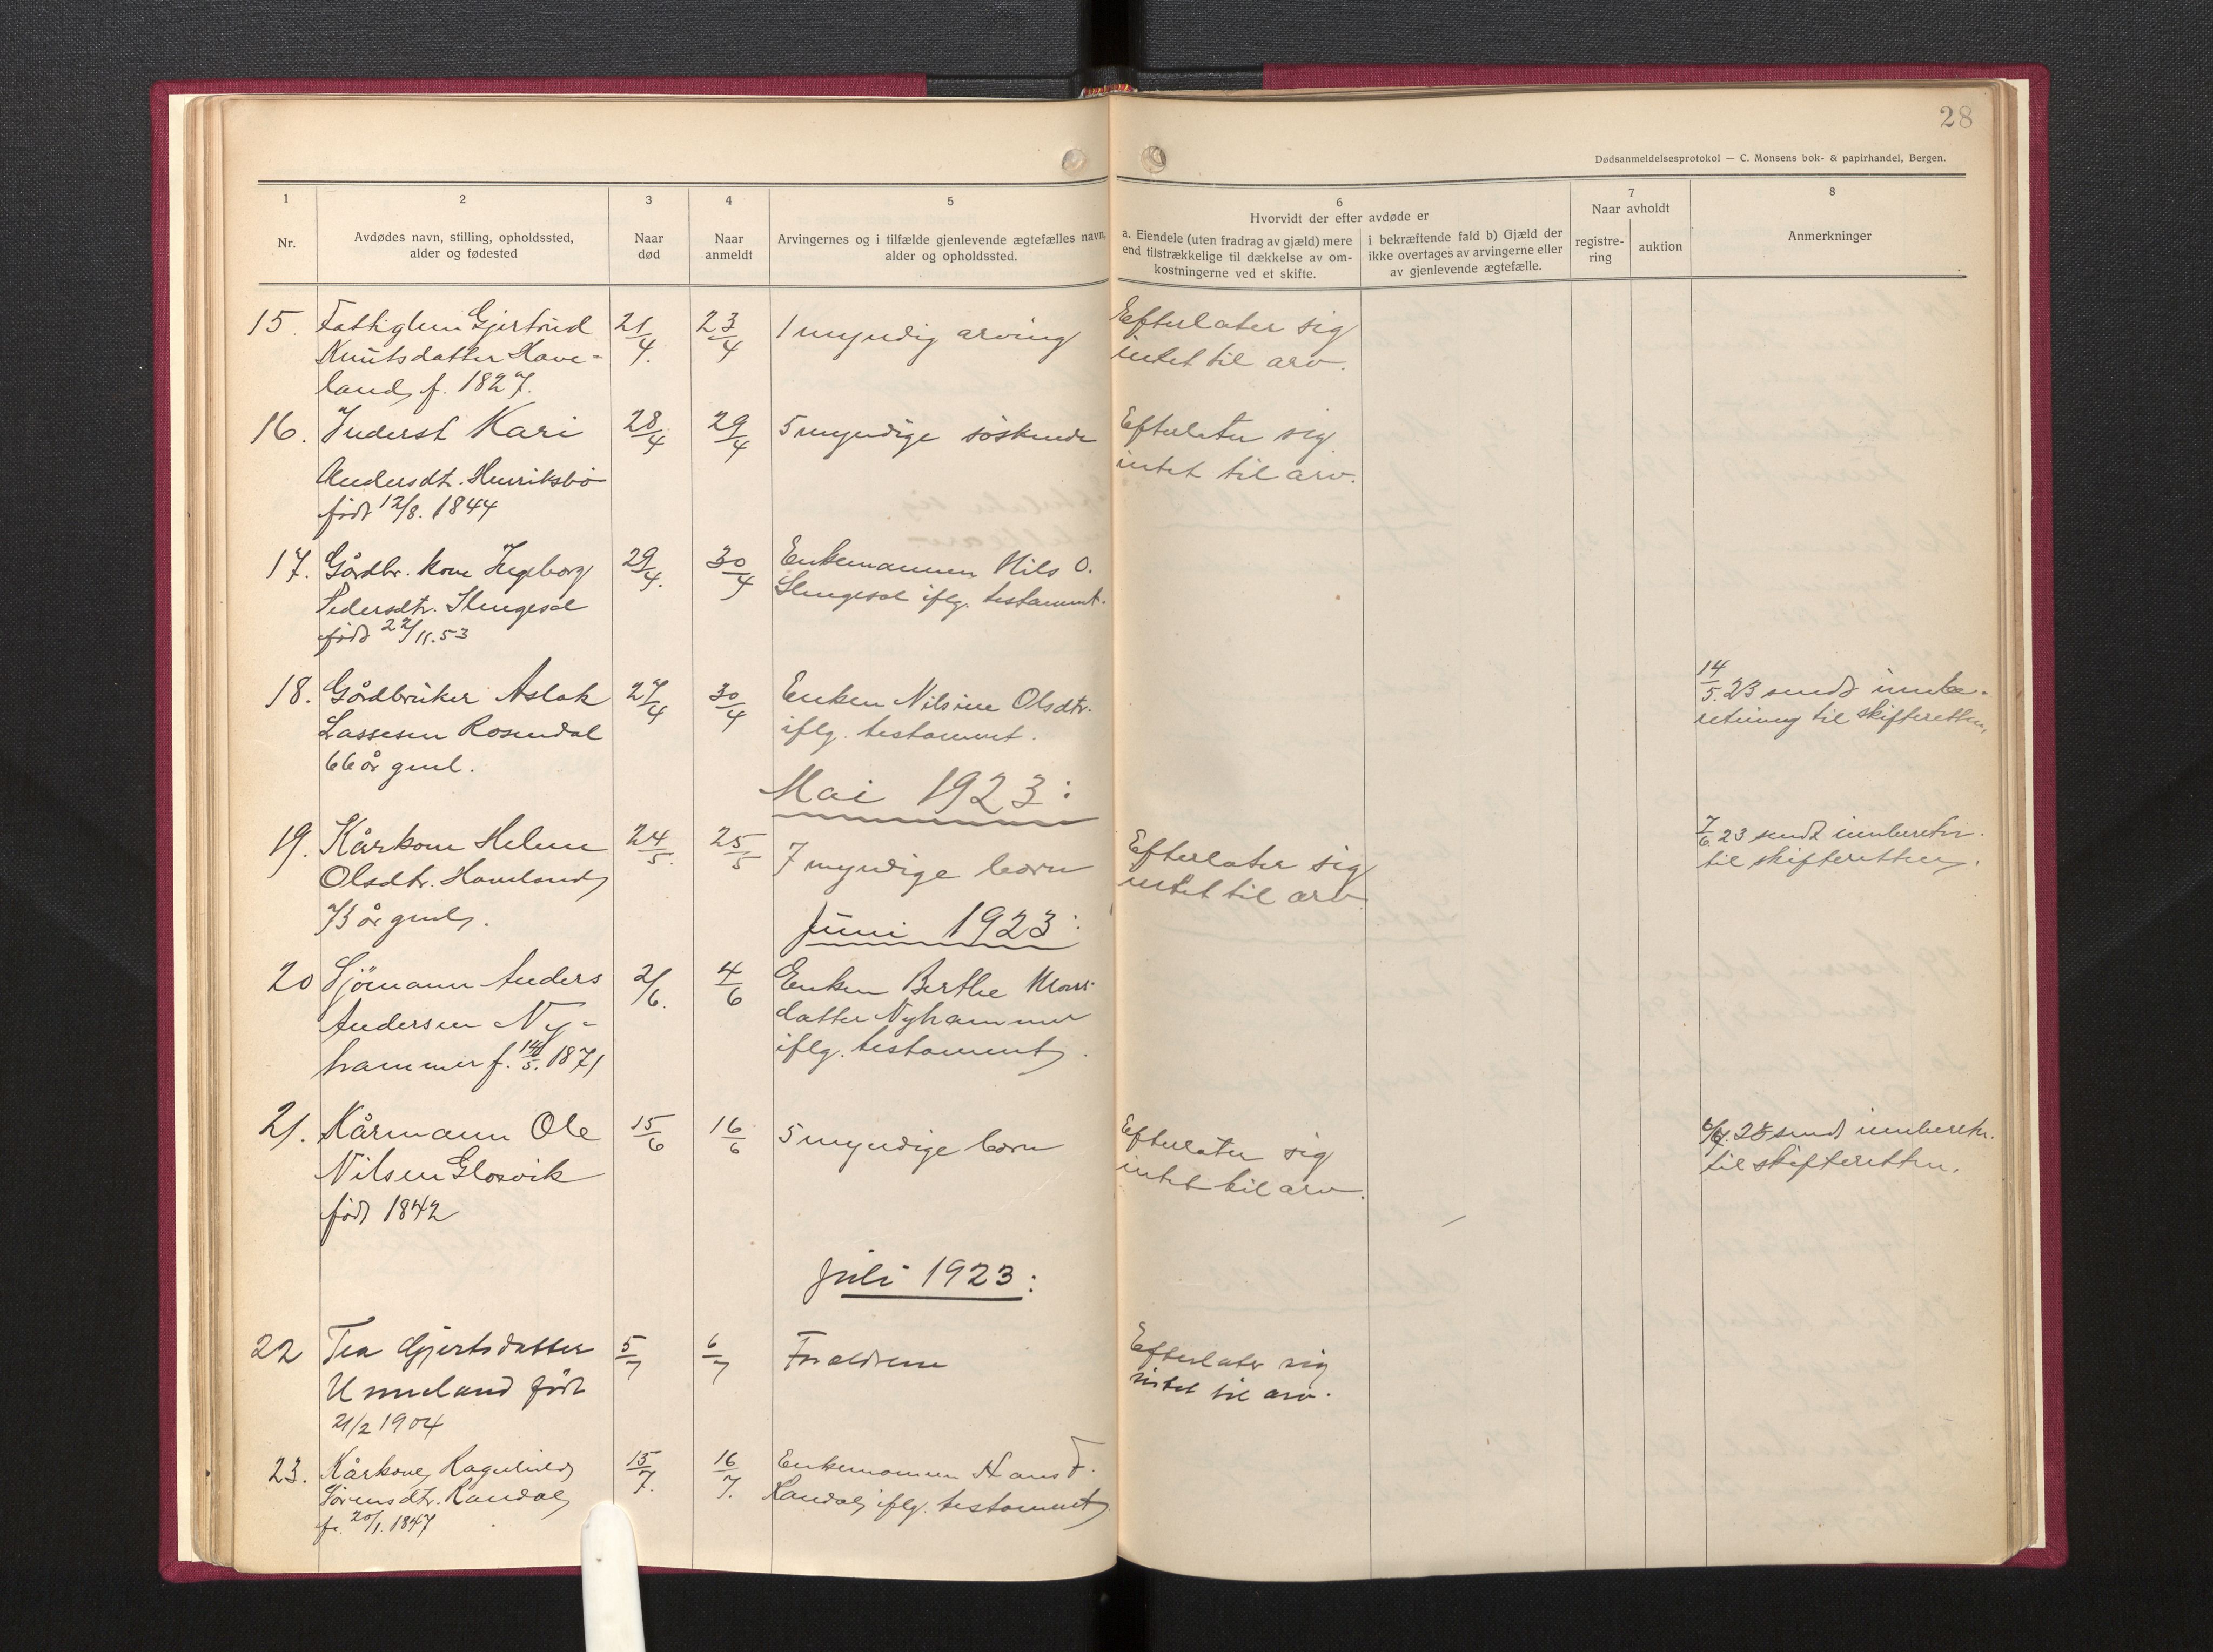 28
Dødsanmeldelsesprotokol — C. Monsens bok- & papirhandel, Bergen.
1 2 3 4 5 6 7 8
Nr.
Avdødes navn, stilling, opholdssted,
alder og fødested
Naar
død
Naar
anmeldt
Arvingernes og i tilfælde gjenlevende ægtefælles navn,
alder og opholdssted.
Hvorvidt der efter avdøde er
a. Eiendele (uten fradrag av gjæld) mere
end tilstrækkelige til dækkelse av om-
kostningerne ved et skifte.
i bekræftende fald b) Gjæld der
ikke overtages av arvingerne eller
av gjenlevende ægtefælle.
Naar avholdt
registre-
ring
auktion
Anmerkninger
15. Fattiglem Gjertrud 21/4. 23/4 1 myndig arving Efterlater sig
Knutsdatter Have- intet til arv.
land f. 1827.
16. Inderst Kari 28/4 29/4 5 myndige søskende Efterlater sig
Andersdt. Henriksbø intet til arv.
født 12/8. 1844
17. Gårdbr. kone Ingeborg 29/4. 30/4 Enkemannen Nils O.
Pedersdtr. Slengesol Slengesol iflg. testament.
født 22/11.53
18. Gårdbruker Aslak 27/4 30/4 Enken Nilsine Olsdtr. 14/5.23 sendt innbe-
Lassesen Rosendal iflg. testament. retning til skifteretten,
66 år gml.
Mai 1923:
19. Kårkone Helene 24/5. 25/5 7 myndige børn Efterlater sig 7/6 23 sendt innberetn.
Olsdtr. Haveland intet til arv til skifteretten.
73 år gml.
Juni 1923:
20 Sjömann Anders 2/6. 4/6 Enken Berthe Mons-
Andersen Ny- datter Nyhammer
hammer f. 14/5. 1871 iflg. testament.
21. Kårmann Ole 15/6 16/6 5 myndige børn Efterlater sig 23 sendt innberetn.
Nilsen Glosvik intet til arv. til skifteretten.
født 1842
Juli 1923:
22 Tea Gjertsdatter 5/7 6/7 Forældrene Efterlater sig
Unneland født intet til arv.
21/2 1904
23. Kårkone Ragnhild 15/7. 16/7. Enkemannen Hans
Sørensdtr. Randal Randal iflg. testament
f. 20/1. 1847